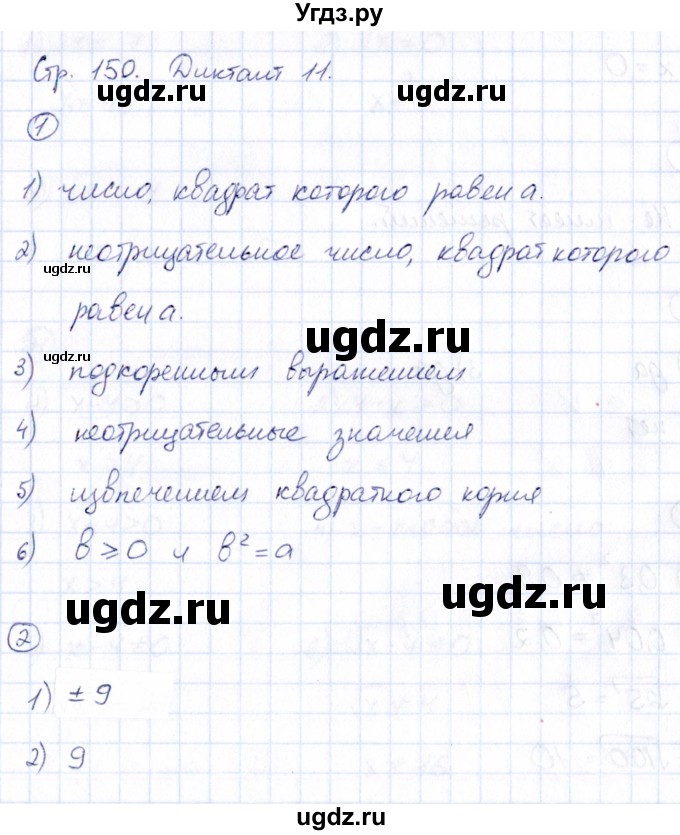 Угдз.ру
Стр. 150. Диктант 11.
ugdz.ru ugdz.ru
1
1) число, квадрат которого равен а.
2) неотрицательное число, квадрат которого
ugdz.ru
равен а.
ugdz.ru
ugdz.ru
3) подкоренным выражением
4) неотрицательные значения
5) извлечением квадратного корня
6) b ≥ 0 и b² = a
ugdz.ru ugdz.ru
2
1) ± 9
2) 9
ugdz.ru